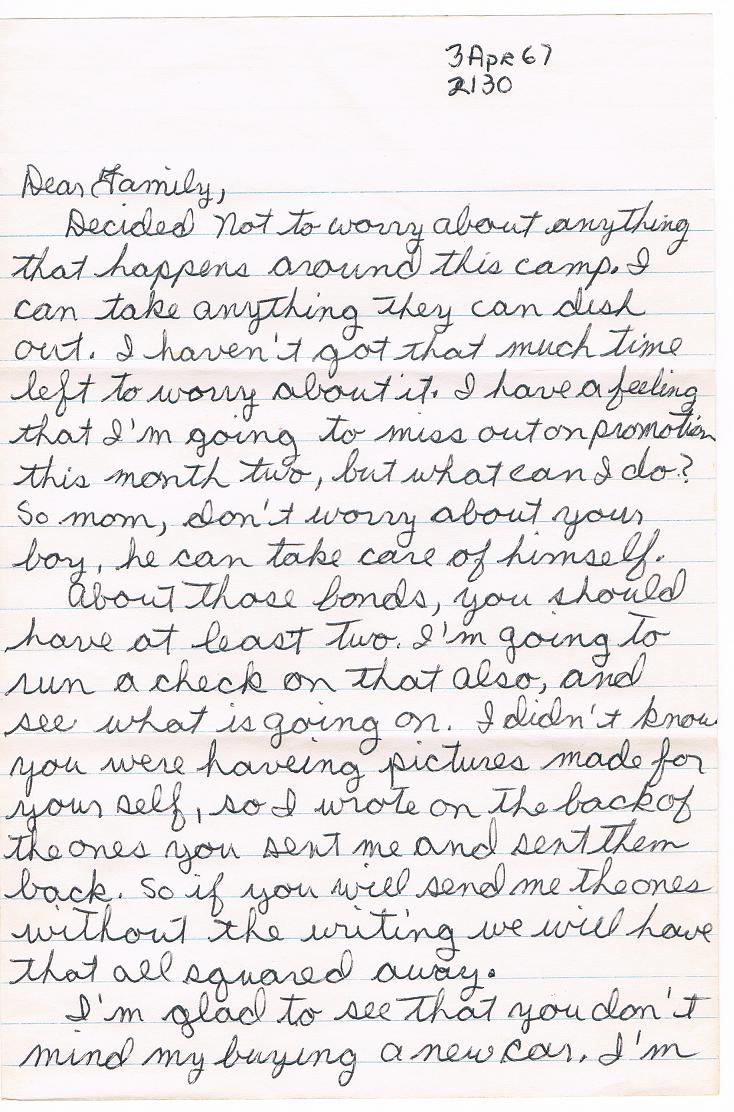 3 Apr 67
2130
Dear Family,
Decided not to worry about anything
that happens around this camp. I
can take anything they can dish
out. I haven't got that much time
left to worry about it. I have a feeling
that I'm going to miss out on promotion
this month two, but what can I do?
So mom, don't worry about your
boy, he can take care of himself.
About those bonds, you should
have at least two. I'm going to
run a check on that also, and
see what is going on. I didn't know
you were haveing pictures made for
your self, so I wrote on the back of
the ones you sent me and sent them
back. So if you will send me the ones
without the writing we will have
that all squared away.
I'm glad to see that you don't
mind my buying a new car. I'm